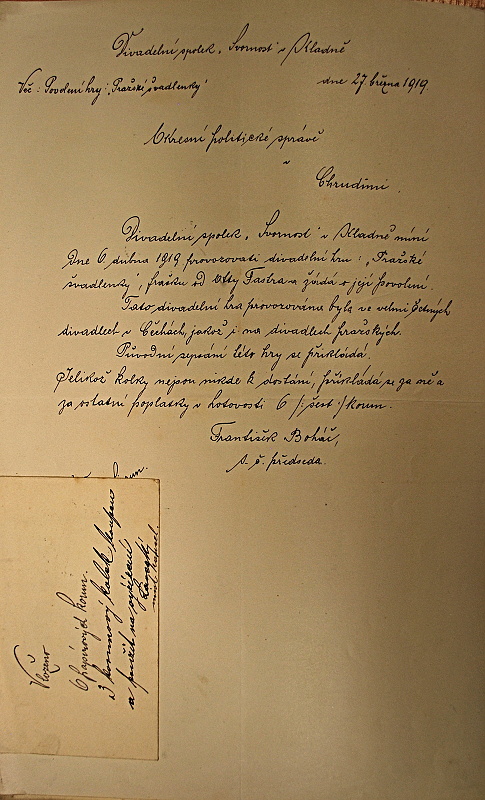 Divadelní spolek „Svornost" v Kladně
Věc: Povolení hry: „Pražské švadlenky"
dne 27 března 1919.
Okresní politické správě
v
Chrudimi.
Divadelní spolek „Svornost" v Kladně míní
dne 6 dubna 1919 provozovati divadelní hru: „Pražské
švadlenky", frašku od Otty Fastra a žádá o její povolení.
Tato divadelní hra provozována byla ve velmi četných
divadlech v Čechách, jakož i na divadlech pražských.
Původní sepsání této hry se přikládá.
Jelikož kolky nejsou nikde k dostání, přikládá se za ně a
za ostatní poplatky v hotovosti 6 /: šest :/ korun.
František Boháč,
t. č. předseda.
korun.
Vloženo
6 papírových korun.
3 korunový kolek koupen
a použit na vyřízení